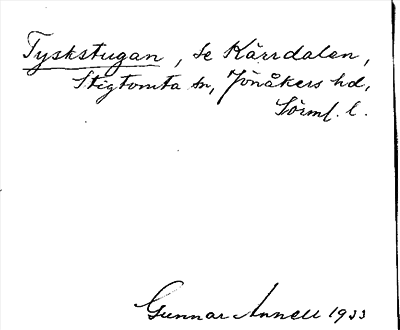 Tyskstugan, se Kärrdalen,
Stigtomta sn, Jönåkers hd,
Sörml. l.
Gunnar Annell 1933